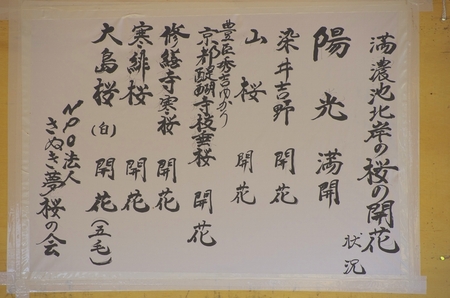 満濃池北岸の桜の開花状況
陽光 満開
染井吉野 開花
山桜 開花
豊臣秀吉ゆかり
京都醍醐寺枝垂桜 開花
修繕寺寒桜 開花
寒緋桜 開花
大島桜(白) 開花(五毛)
NPO法人
さぬき夢桜の会